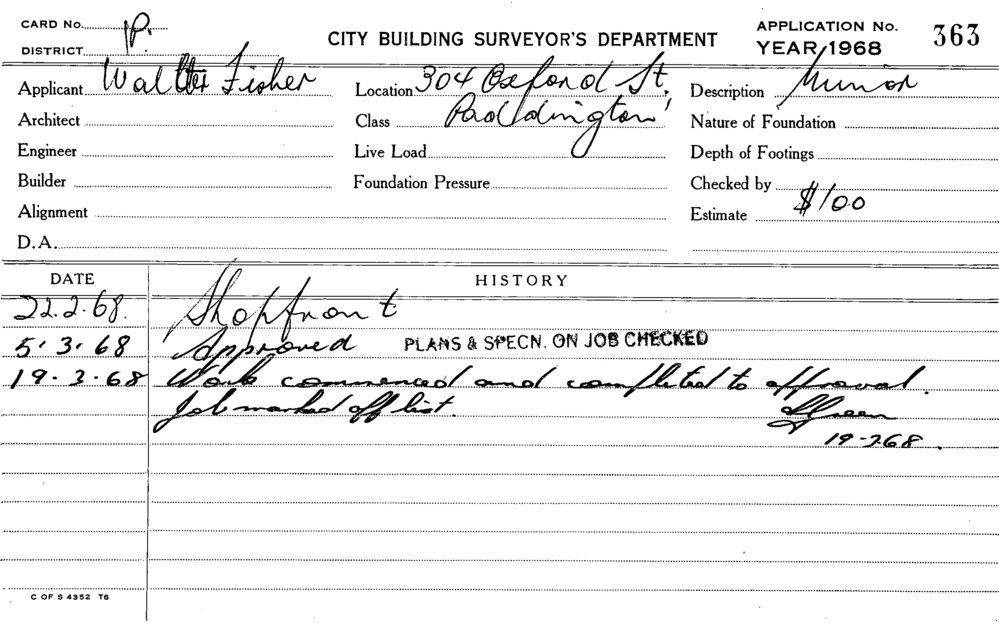 CARD No. P.
DISTRICT
CITY BUILDING SURVEYOR'S DEPARTMENT
APPLICATION No. 363
YEAR/1968
Applicant Walter Fisher
Location 304 Oxford St.
Description Minor
Architect
Class Paddington
Nature of Foundation
Engineer
Live Load
Depth of Footings
Builder
Foundation Pressure
Checked by
Alignment
Estimate $100
D.A.
DATE HISTORY
22.2.68. Shopfront
5.3.68 Approved PLANS & SPECN. ON JOB CHECKED
19.3.68 Work commenced and completed to approval.
Job marked off list.
19-268.
C OF S 4352 T6